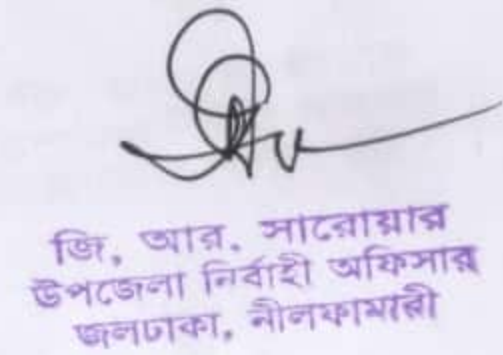 জি, আর. সারোয়ার
উপজেলা নির্বাহী অফিসার
জলঢাকা, নীলফামারী